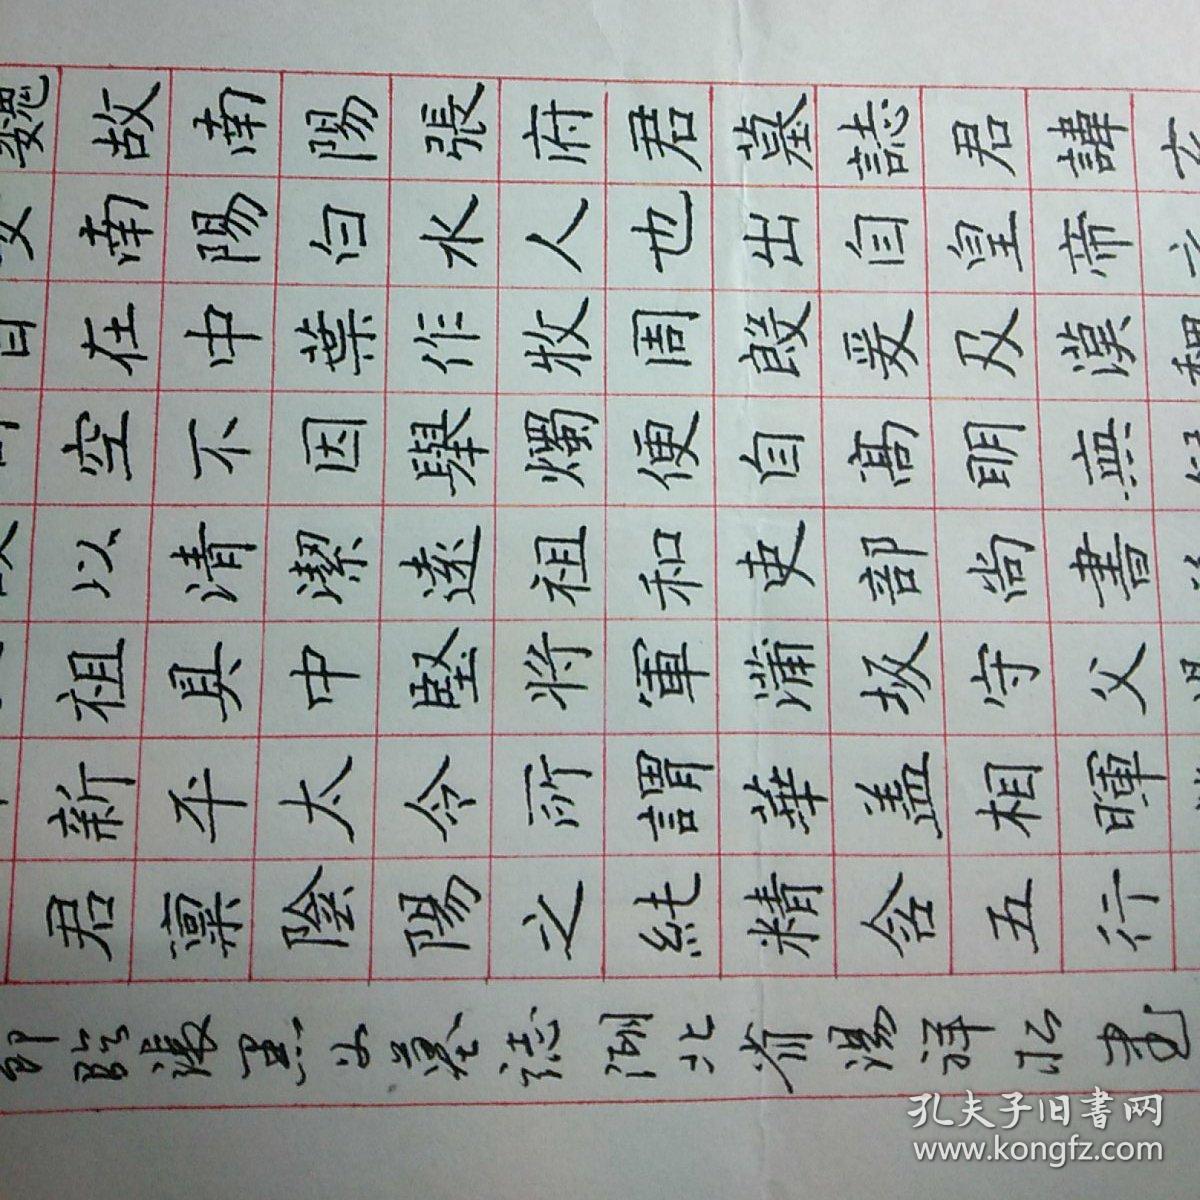 魏故南陽張府君墓誌君諱玄
女南陽白水人也出自皇帝之
在中葉作牧周殷爰及漢魏
空不因舉燭便自高明無
以清潔遠祖和吏部尚書
祖具中堅将軍蒲坂守父
新平太令所謂華蓋相暉
君稟陰陽之純精含五行
節臨張黑女墓誌湖北省湯祥弘書
孔夫子旧书网
www.kongfz.com